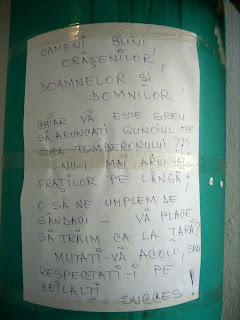 OAMENI BUNI,
ORĂȘENILOR,
DOAMNELOR ȘI
DOMNILOR
CHIAR VĂ ESTE GREU
SĂ ARUNCAȚI GUNOIUL PE
GURA TOMBERONULUI ???
NU-L MAI ARUNCAȚI
FRAȚILOR PE LÂNGĂ!
O SĂ NE UMPLEM DE
GÂNDACI – VĂ PLACE
SĂ TRĂIM CA LA ȚARĂ?
MUTAȚI-VĂ ACOLO, SAU
RESPECTAȚI-I PE
CEILALȚI
SUCCES!